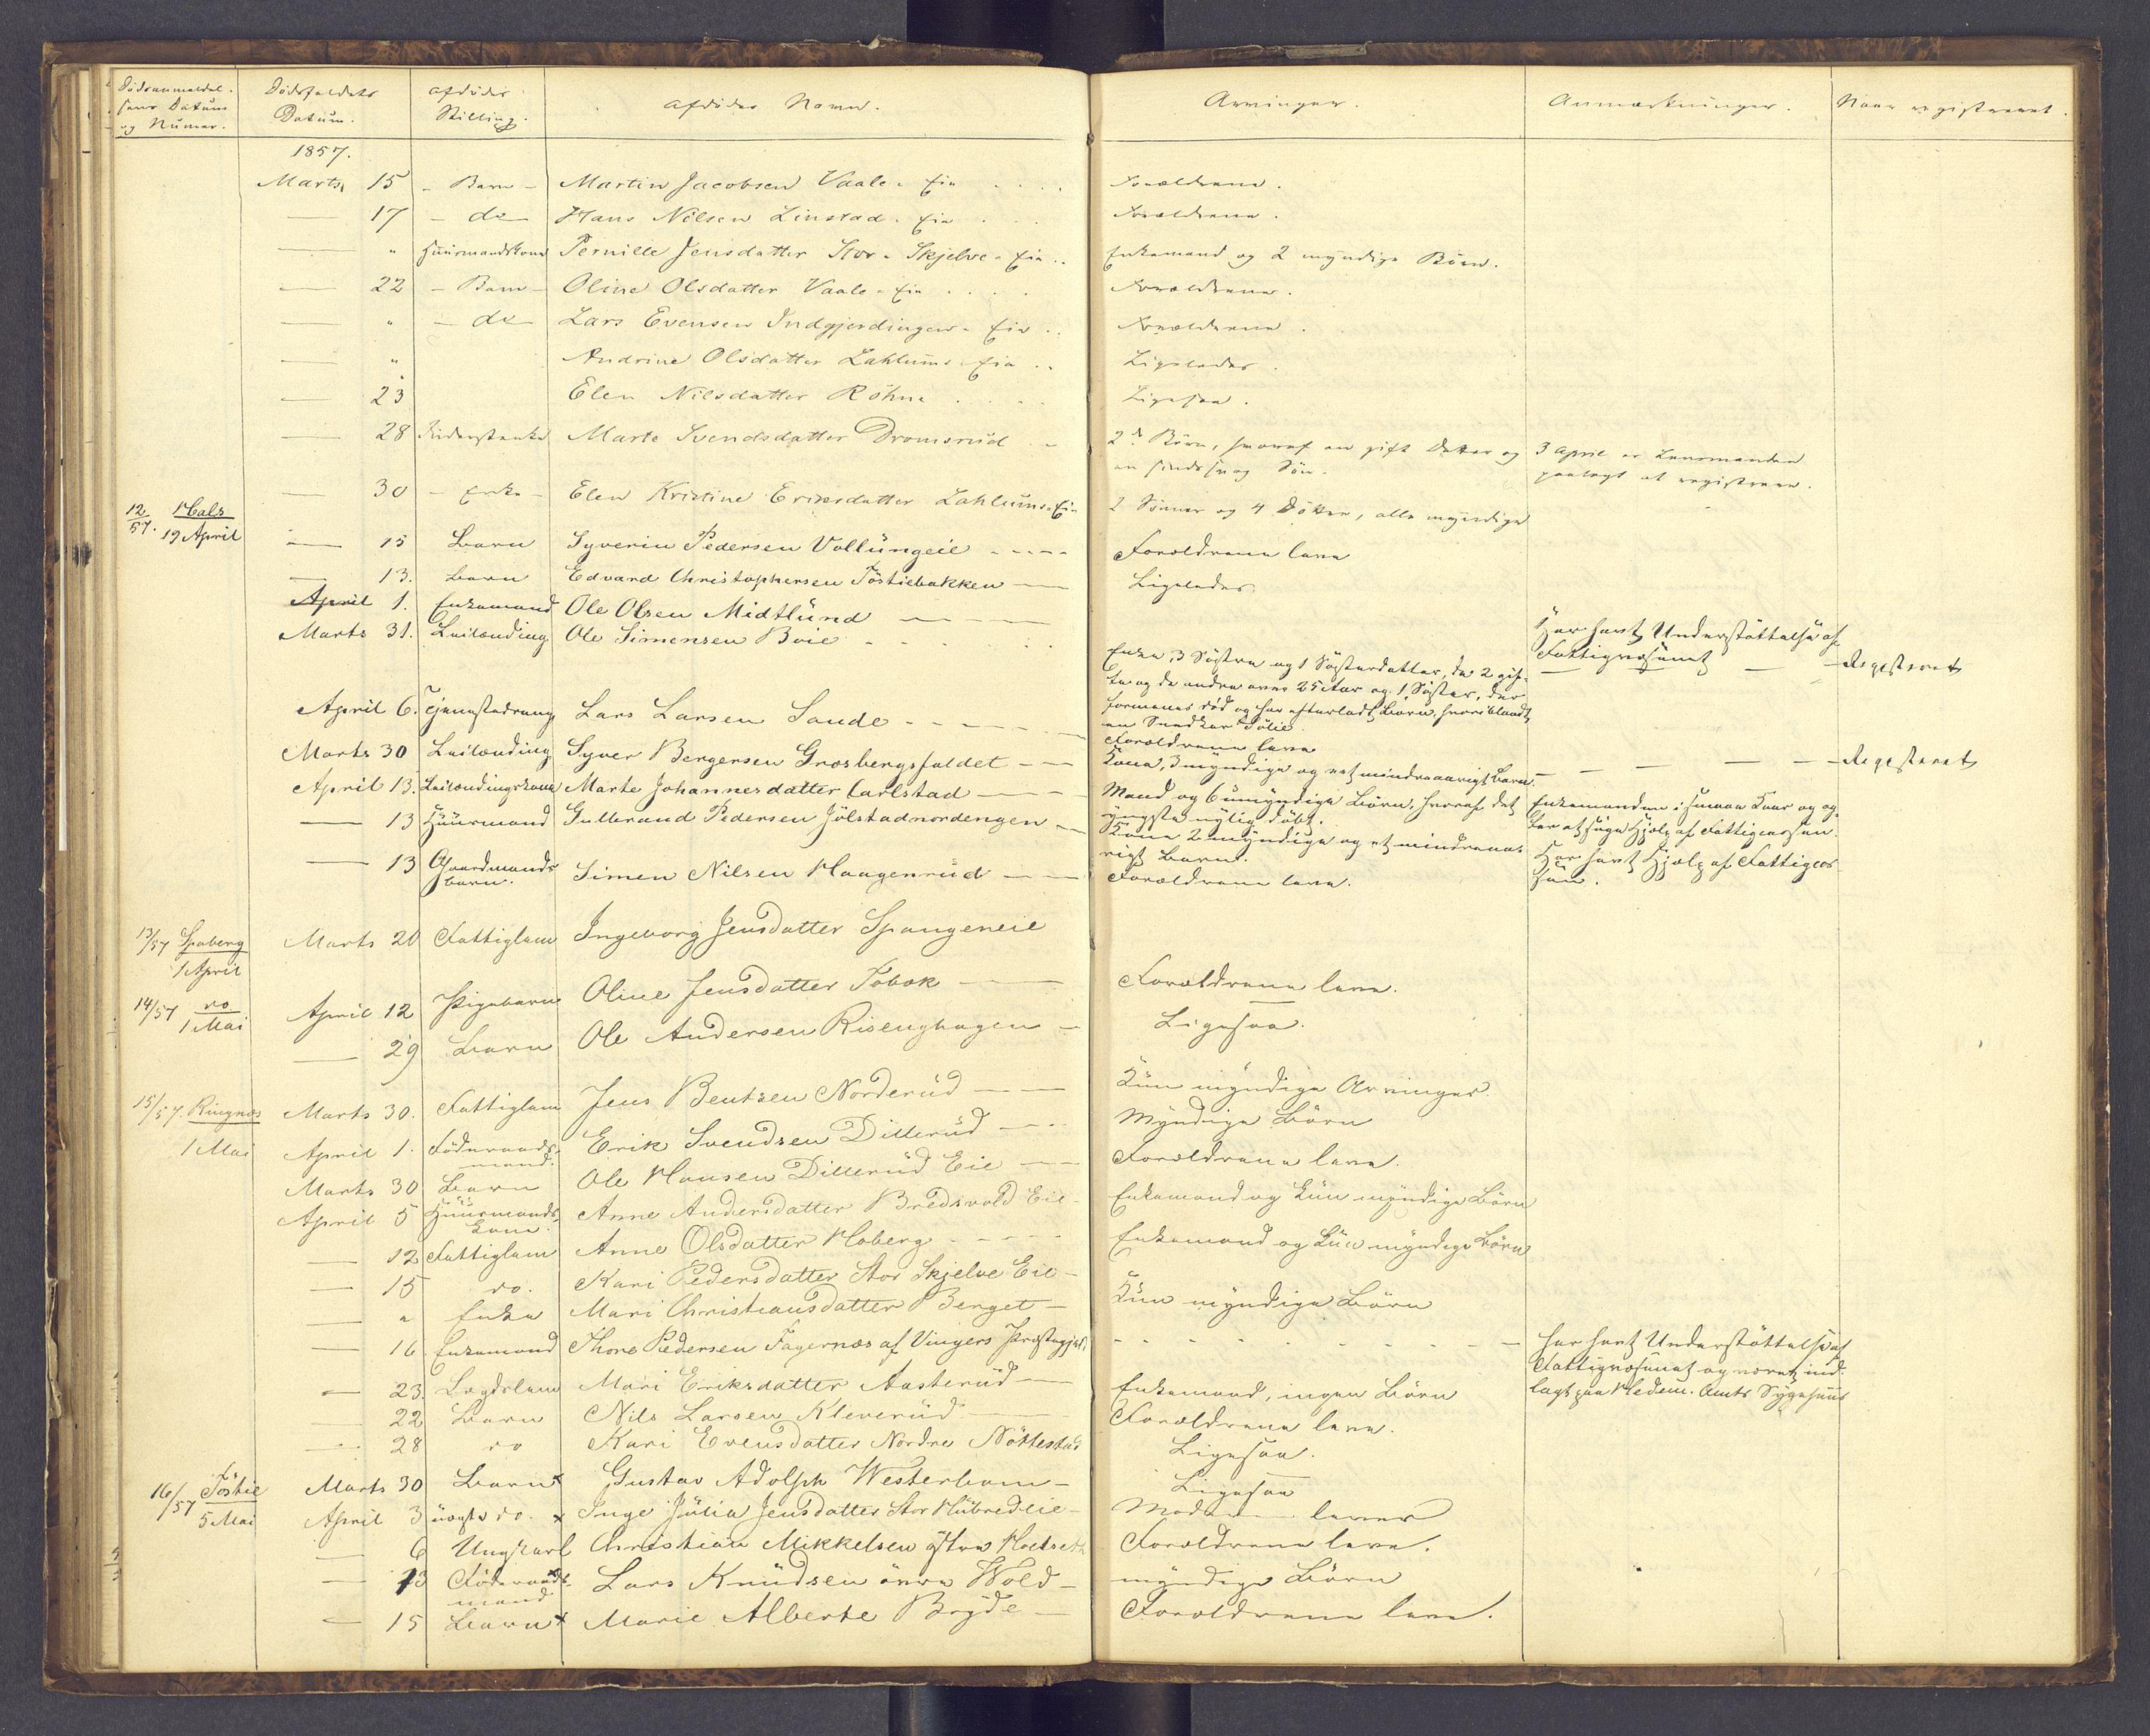 Dödsanmeldel-
sens Datum
og Numer.
Dödsfaldets
Datum.
Afdödes
Stilling.
Afdödes Navn.
Arvinger.
Anmærkninger.
Naar registreret.
1857.
Marts 15 - Barn - Martin Jacobsen Vaale-Eie Forældrene.
— 17 - do - Hans Nilsen Linstad-Eie Forældrene.
— " Huusmandskone Pernille Jensdatter Stor-Skjelve-Eie Enkemand og 2 myndige Börn.
— 22 - Barn - Oline Olsdatter Vaale-Eie Forældrene.
— " - do - Lars Evensen Indgjerdingen-Eie Forældrene.
— " Andrine Olsdatter Lahlums-Eie Ligeledes.
— 23 Elen Nilsdatter Röhne Ligesaa.
— 28 Marte Svendsdatter Dromsrud 2de Börn, hvoraf en gift Datter og 3 April er Lensmanden
en sindssvag Sön. paalagt at registrere.
— 30 - Enke - Elen Kristine Eriksdatter Lahlums-Eie 2 Sönner og 4 Döttre, alle myndige
12/57. Hals
19 April
— 15 Barn Syverin Pedersen Vollungeie Forældrene leve
— 13. Barn Edvard Christophersen Töstiebakken Ligeledes
April 1. Enkemand Ole Olsen Midtlund Har havt Understöttelse af
Fattigvæsenet
Marts 31. Leilænding Ole Simensen Boie Enke, 3 Söstre og 1 Sösterdatter, de 2 gif- Registeret
te og de andre over 25 Aar og 1 Söster, der
formenes död og har efterladt Börn, hvoriblandt
en Snedker Tölie.
April 6. Tjenestedreng Lars Larsen Sande Forældrene leve
Marts 30 Leilænding Syver Bergersen Grosbergsfaldet Kone, 3 myndige og et mindreaarigt Barn. Registeret
April 13. Leilændingskone Marte Johannesdatter Carlstad Mand og 6 umyndige Börn, hvoraf det Enkemanden i smaae Kaar og
yngste nylig födt. Hjælp af Fattigcassen.
— 13 Huusmand Gulbrand Pedersen Jölstadnordengen Kone 2 myndige og et mindreaa- Har havt Hjælp af Fattigcas
rigt Barn. sen.
— 13 Gaardmands
barn. Simen Nilsen Haagenrud Forældrene leve.
13/57 Spaberg
1 April
Marts 20 Fattiglem Ingeborg Jensdatter Spangeneie
14/57 do
1 Mai
April 12 Pigebarn Oline Jensdatter Tobok Forældrene leve.
— 29 Barn Ole Andersen Risenghagen Ligesaa.
15/57. Ringnæs
1 Mai
Marts 30. Fattiglem Jens Bentsen Norderud Kun myndige Arvinger.
April 1. Föderaads-
mand. Erik Svendsen Dillerud Myndige Börn
Marts 30 Barn Ole Hansen Dillerud Eie Forældrene leve.
April 5 Huusmands-
kone. Anne Andersdatter Bredsvold Eie Enkemand og kun myndige Börn
— 12 Fattiglem Anne Olsdatter Hoberg Enkemand og kun myndige Börn
— 15 do. Kari Pedersdatter Stor Skjelve Eie
— " Enke Mari Christiansdatter Berget Kun myndige Börn
— 16 Enkemand Thore Pedersen Fagernæs af Vingers Præstegjeld. Har havt Understöttelse af
Fattigvæsenet og været ind-
lagt paa Hedem. Amts Sygehuus
— 23. Lægdslem Mari Eriksdatter Aasterud Enkemand, ingen Börn
— 22 Barn Nils Larsen Kleverud Forældrene leve.
— 28 do Kari Evensdatter Nordre Nöttestad Ligesaa.
16/57 Töstie
5 Mai
Marts 30 Barn x Gustav Adolph Westerbom Ligesaa
April 3 uægte do. x Inge Julia Jensdatter Stor Hubredeie Moderen lever
— 6 Ungkarl Christian Mikkelsen östre Holseth Forældrene leve.
— 13 Föderaads-
mand Lars Knudsen övre Wold myndige Börn
— 15 Barn x Marie Alberte Bryde Forældrene leve.